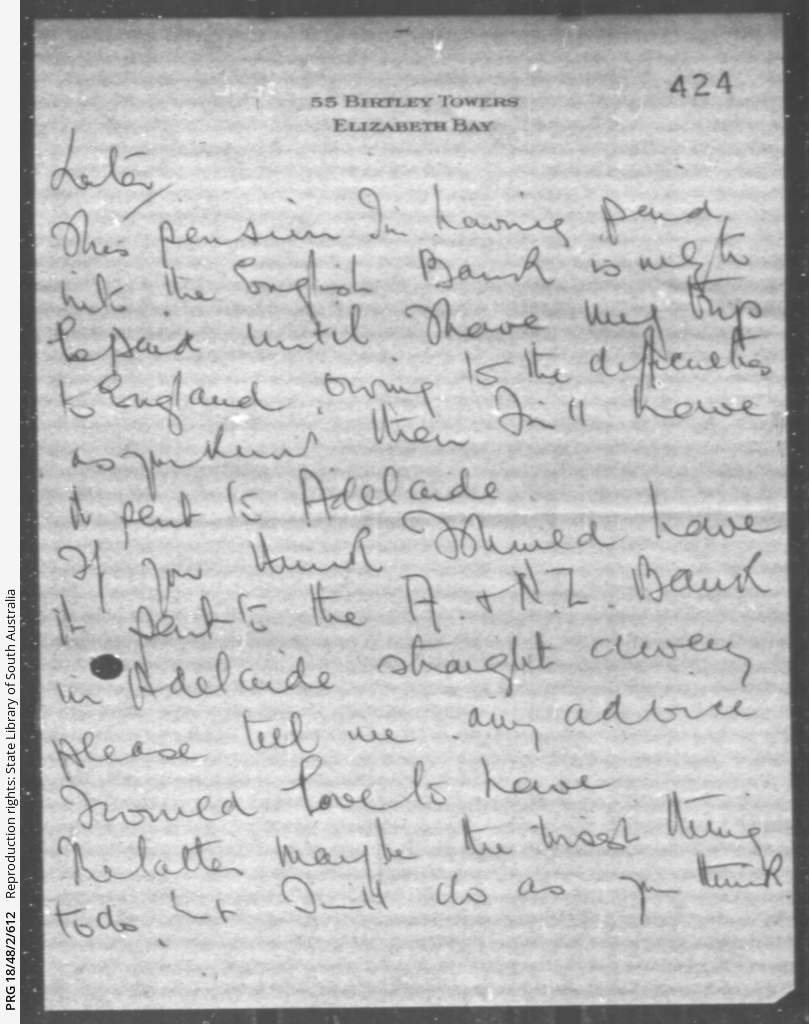 424
55 BIRTLEY TOWERS
ELIZABETH BAY
Later
This pension I'm having paid
into the English Bank is only to
be paid until I have my trip
to England owing to the difficulties
as you know then I will have
it sent to Adelaide
If you think I should have
it sent to the A. & N.Z. Bank
in Adelaide straight away
please tell me. any advice
I would love to have
The latter maybe the wisest thing
to do but I will do as you think
PRG 18/48/2/612 Reproduction rights: State Library of South Australia